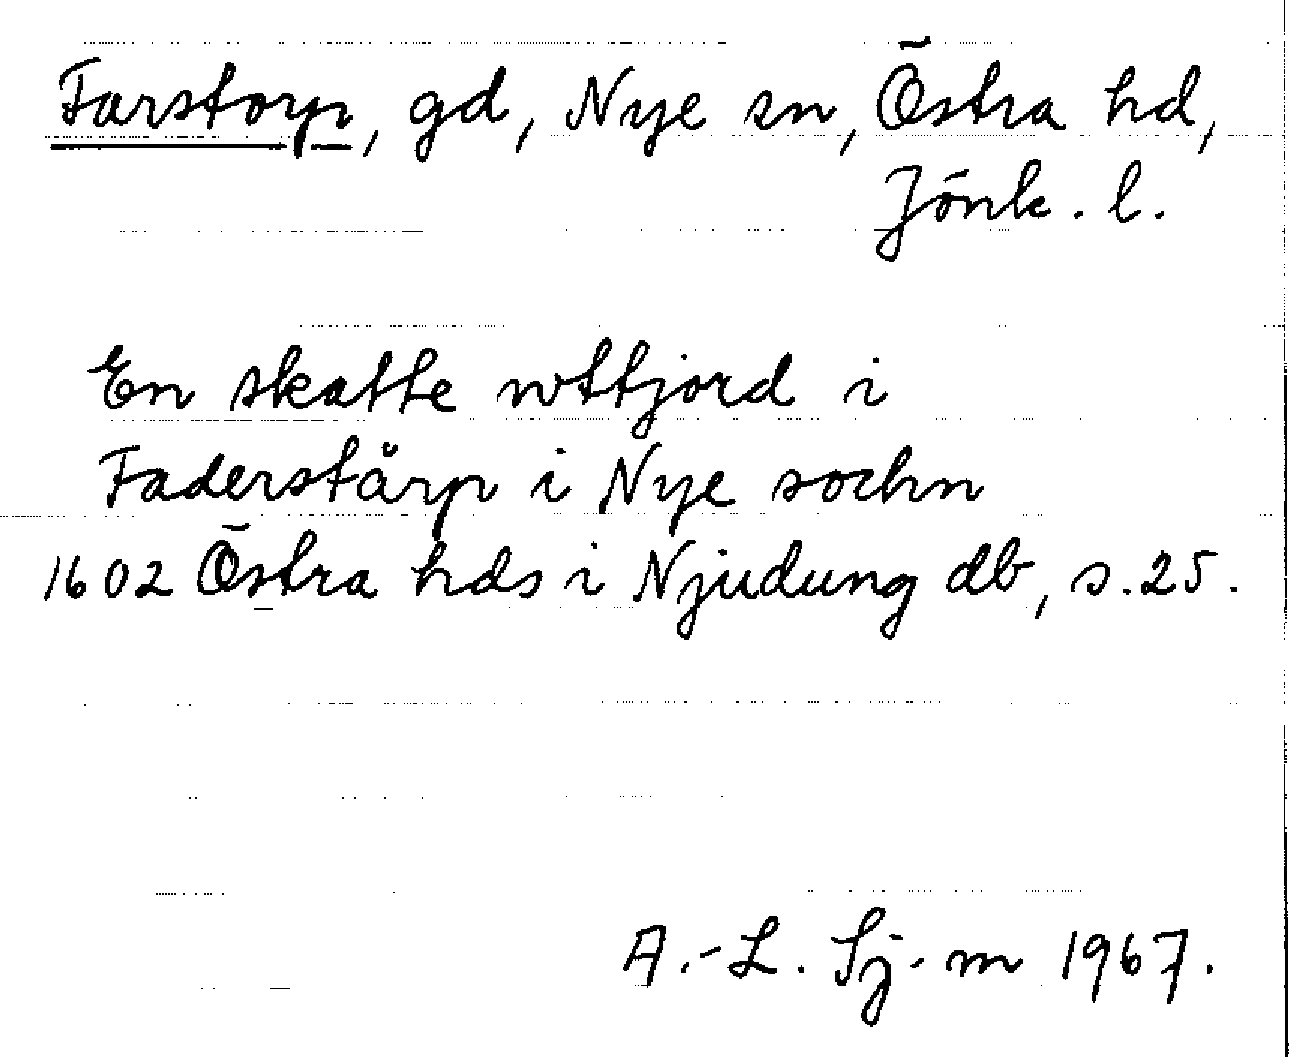 Farstorp, gd, Nye sn, Östra hd,
Jönk. l.
En skatte wttjord i
Faderstårp i Nye sochn
1602 Östra hds i Njudung db, s. 25.
A.-L. Sj-m 1967.